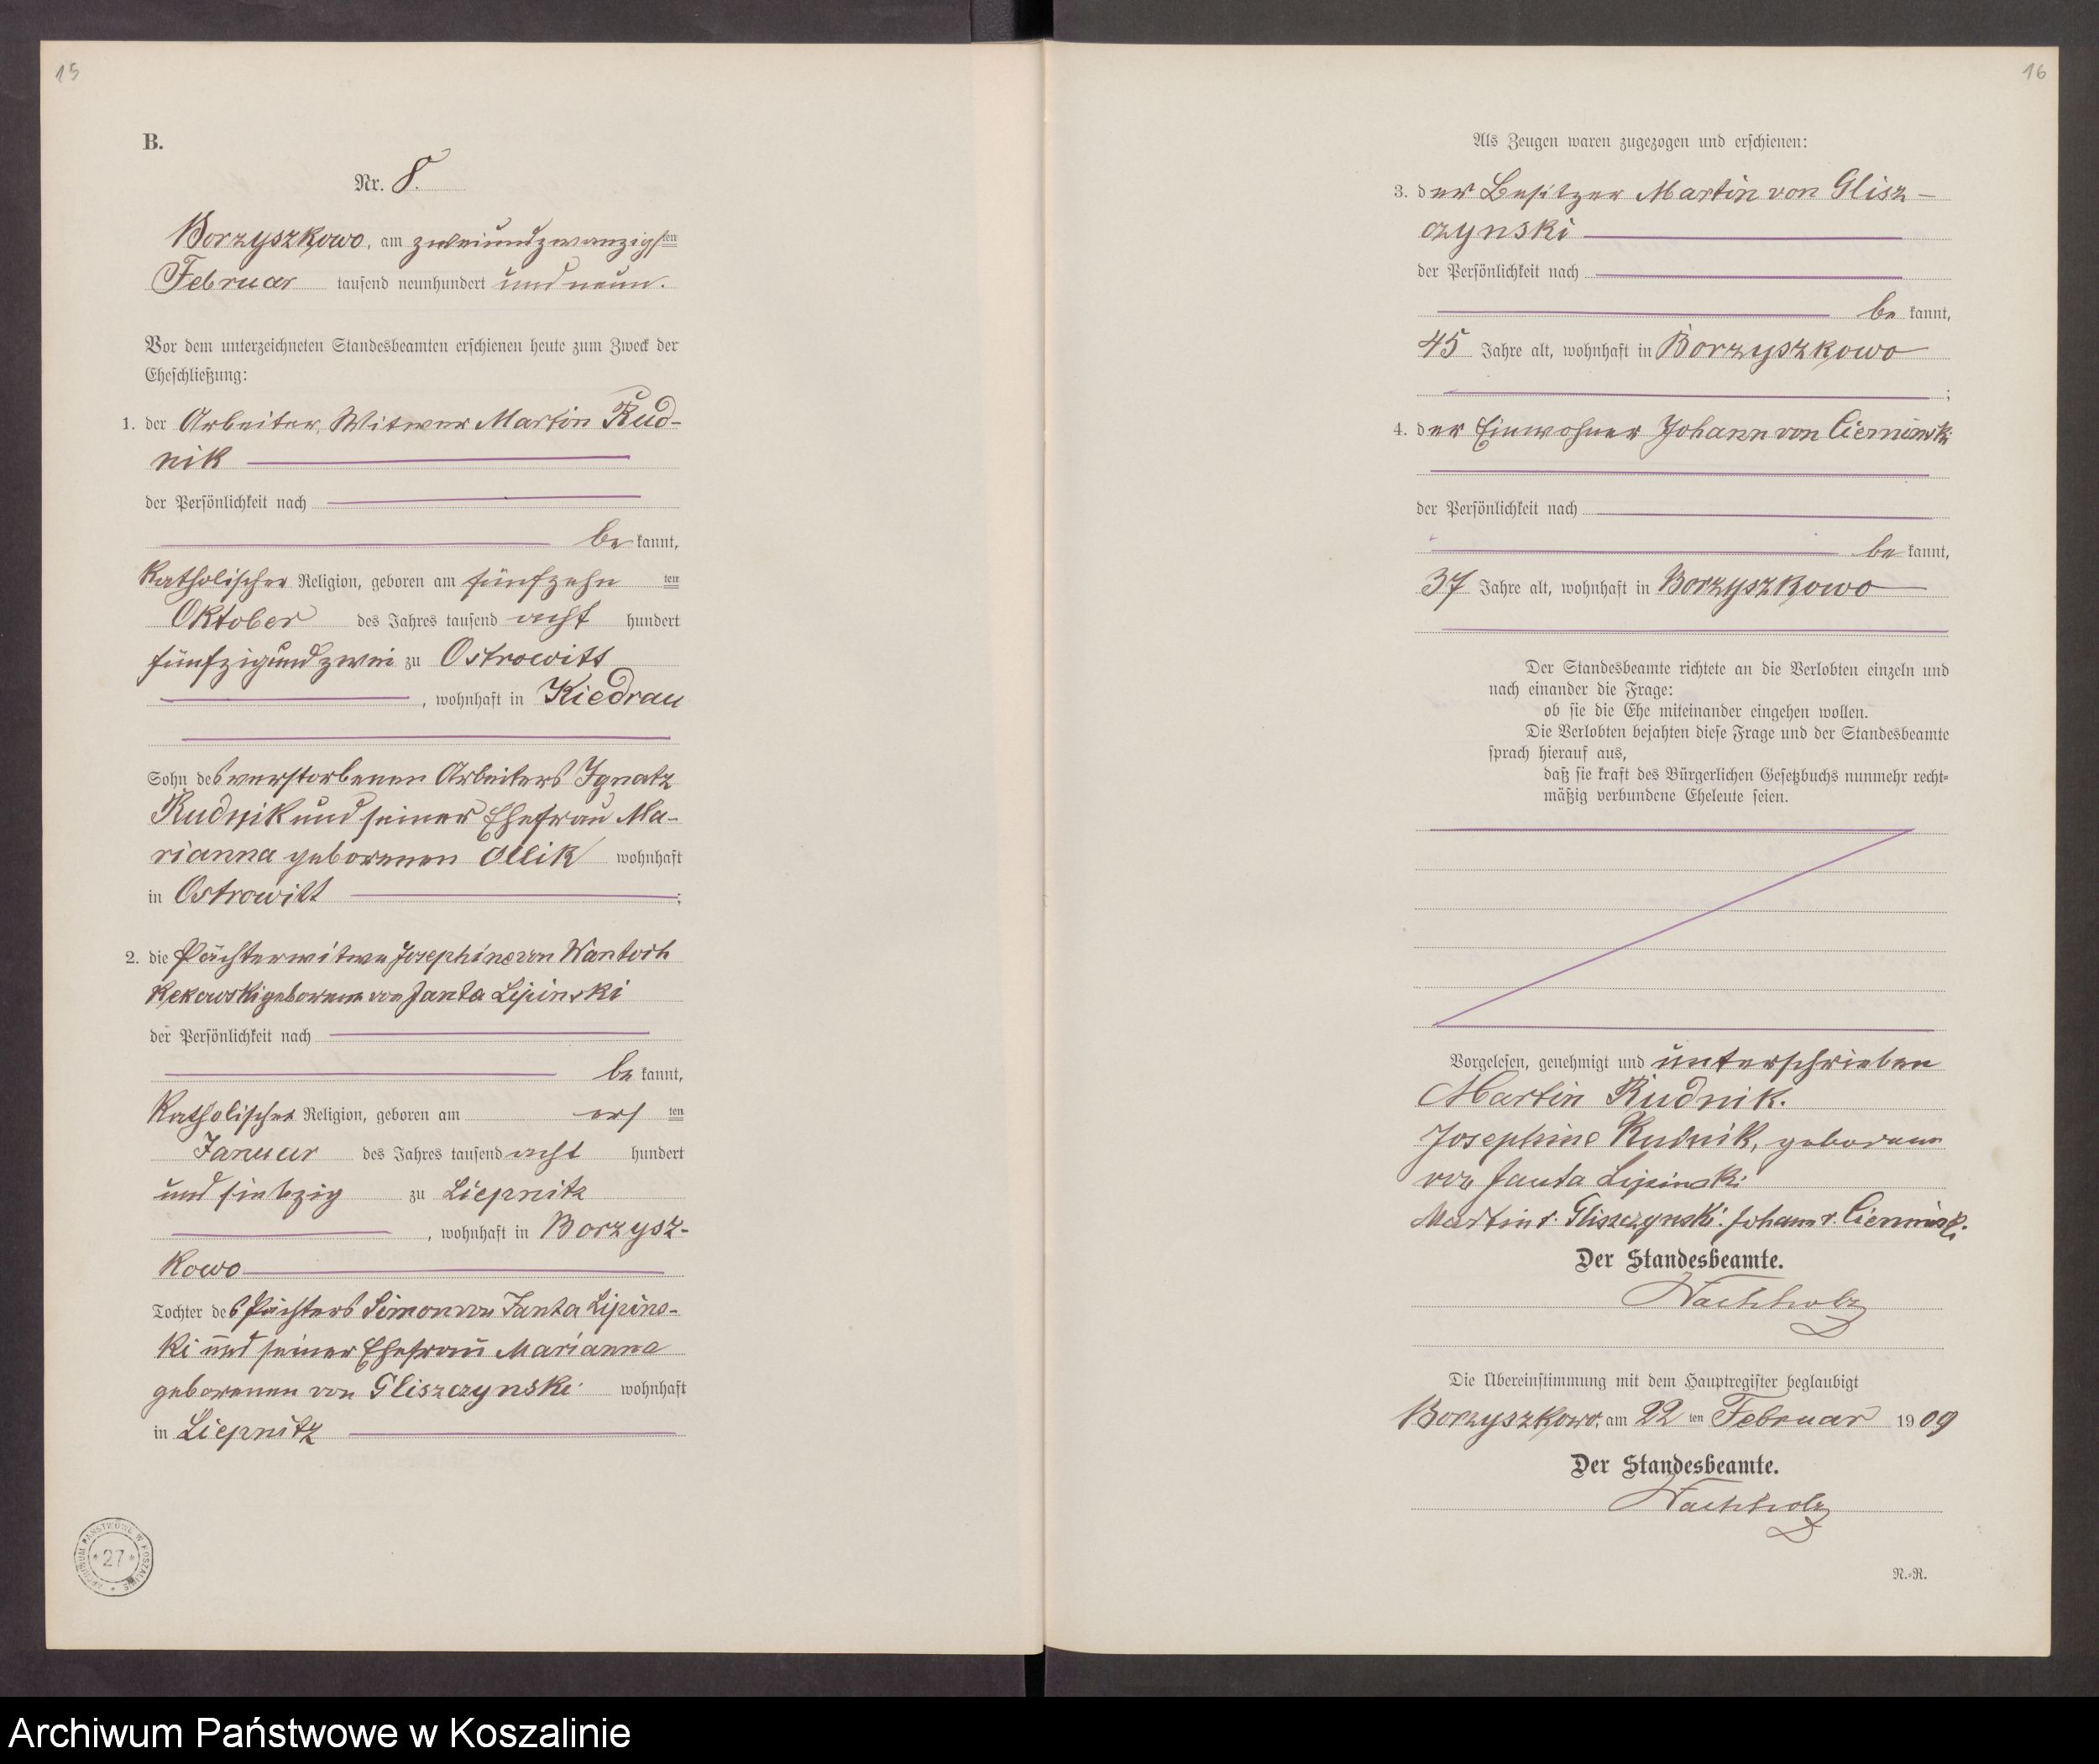 15
B.
Nr. 8.
Borzyszkowo, am zweiundzwanzigsten
Februar tausend neunhundert und neun.
Vor dem unterzeichneten Standesbeamten erschienen heute zum Zweck der
Eheschließung:
1. der Arbeiter, Witwer Martin Rud-
nik
der Persönlichkeit nach
be kannt,
katholischer Religion, geboren am fünfzehn ten
Oktober des Jahres tausend acht hundert
fünfzig und zwei zu Ostrowitt
, wohnhaft in Kiedrau
Sohn des verstorbenen Arbeiters Ignatz
Rudnik und seiner Ehefrau Ma-
rianna geborenen Ollik wohnhaft
in Ostrowitt ;
2. die Pächterwitwe Josephine von Wantoch
Rekowski geborene von Janta Lipinski
der Persönlichkeit nach
be kannt,
katholischer Religion, geboren am ers ten
Januar des Jahres tausend acht hundert
und siebzig zu Liepnitz
, wohnhaft in Borzysz-
kowo
Tochter des Pächters Simon von Janta Lipins-
ki und seiner Ehefrau Marianna
geborenen von Gliszczynski wohnhaft
in Liepnitz
ARCHIWUM PAŃSTWOWE W KOSZALINIE * 27 *
16
Als Zeugen waren zugezogen und erschienen:
3. der Besitzer Martin von Glisz-
czynski
der Persönlichkeit nach
be kannt,
45 Jahre alt, wohnhaft in Borzyszkowo
;
4. der Einwohner Johann von Cieminski
der Persönlichkeit nach
be kannt,
37 Jahre alt, wohnhaft in Borzyszkowo
Der Standesbeamte richtete an die Verlobten einzeln und
nach einander die Frage:
ob sie die Ehe miteinander eingehen wollen.
Die Verlobten bejahten diese Frage und der Standesbeamte
sprach hierauf aus,
daß sie kraft des Bürgerlichen Gesetzbuchs nunmehr recht-
mäßig verbundene Eheleute seien.
Vorgelesen, genehmigt und unterschrieben
Martin Rudnik.
Josephine Rudnik, geborene
von Janta Lipinski
Martin v. Gliszczynski. Johann v. Cieminski.
Der Standesbeamte.
Wachholz
Die Übereinstimmung mit dem Hauptregister beglaubigt
Borzyszkowo, am 22 ten Februar 1909
Der Standesbeamte.
Wachholz
N.-R.
Archiwum Państwowe w Koszalinie